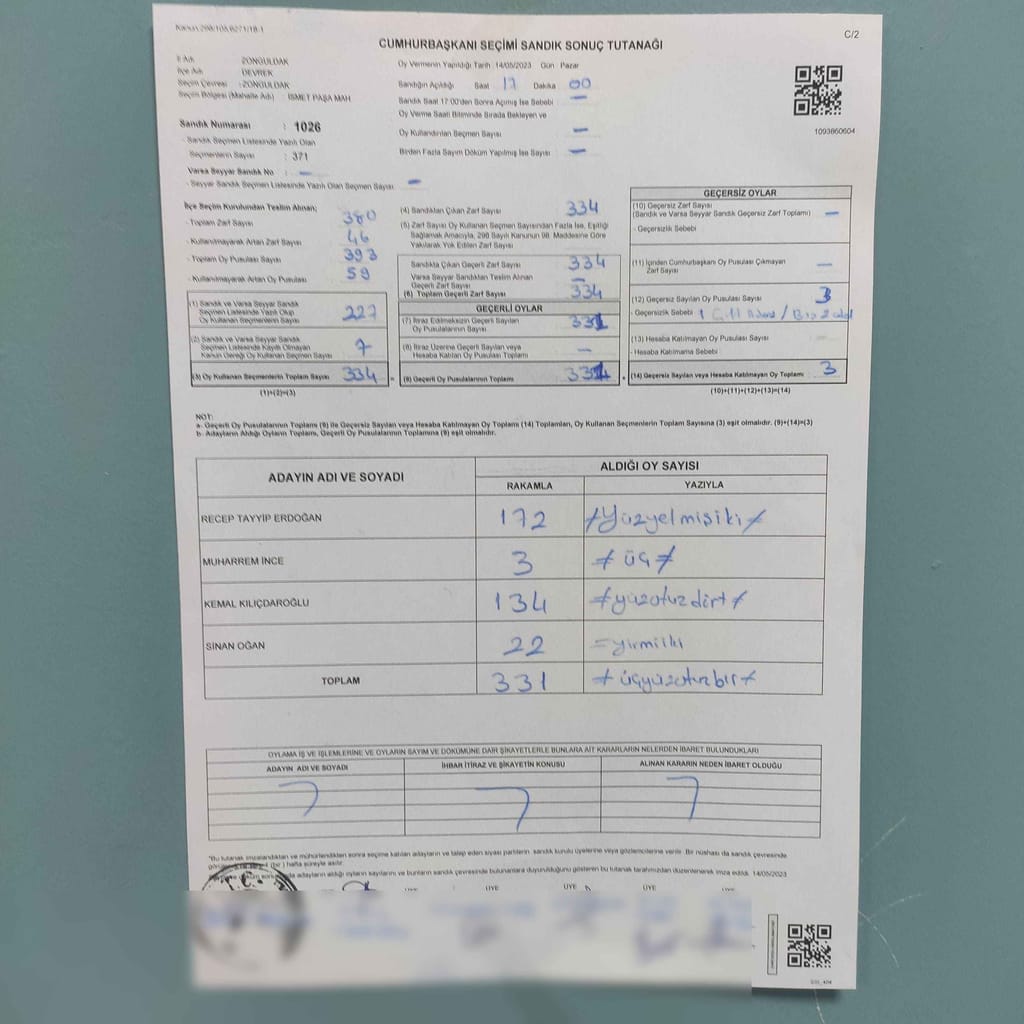 C/2
CUMHURBAŞKANI SEÇİMİ SANDIK SONUÇ TUTANAĞI
İl Adı : ZONGULDAK
İlçe Adı : DEVREK
Seçim Çevresi : ZONGULDAK
Seçim Bölgesi (Mahalle Adı) : İSMET PAŞA MAH
Sandık Numarası : 1026
- Sandık Seçmen Listesinde Yazılı Olan
Seçmenlerin Sayısı : 371
Varsa Seyyar Sandık No : -
- Seyyar Sandık Seçmen Listesinde Yazılı Olan Seçmen Sayısı -
Oy Vermenin Yapıldığı Tarih : 14/05/2023 Gün : Pazar
Sandığın Açıldığı Saat 17 Dakika 00
Sandık Saat 17:00'den Sonra Açılmış İse Sebebi -
Oy Verme Saati Bitiminde Sırada Bekleyen ve
Oy Kullandırılan Seçmen Sayısı -
Birden Fazla Sayım Döküm Yapılmış İse Sayısı -
1093860604
İlçe Seçim Kurulundan Teslim Alınan;
- Toplam Zarf Sayısı 380
- Kullanılmayarak Artan Zarf Sayısı 46
- Toplam Oy Pusulası Sayısı 393
- Kullanılmayarak Artan Oy Pusulası 59
(1) Sandık ve Varsa Seyyar Sandık
Seçmen Listesinde Yazılı Olup
Oy Kullanan Seçmenlerin Sayısı
(2) Sandık ve Varsa Seyyar Sandık
Seçmen Listesinde Kayıtlı Olmayan
Kanun Gereği Oy Kullanan Seçmen Sayısı 7
(3) Oy Kullanan Seçmenlerin Toplam Sayısı 334
(1)+(2)=(3)
(4) Sandıktan Çıkan Zarf Sayısı 334
(5) Zarf Sayısı Oy Kullanan Seçmen Sayısından Fazla İse, Eşitliği
Sağlamak Amacıyla, 298 Sayılı Kanunun 98. Maddesine Göre
Yakılarak Yok Edilen Zarf Sayısı
Sandıkta Çıkan Geçerli Zarf Sayısı 334
Varsa Seyyar Sandıktan Teslim Alınan
Geçerli Zarf Sayısı -
(6) Toplam Geçerli Zarf Sayısı 334
GEÇERLİ OYLAR
(7) İtiraz Edilmeksizin Geçerli Sayılan
Oy Pusulalarının Sayısı 331
(8) İtiraz Üzerine Geçerli Sayılan veya
Hesaba Katılan Oy Pusulası Toplamı -
(9) Geçerli Oy Pusulalarının Toplamı 331
GEÇERSİZ OYLAR
(10) Geçersiz Zarf Sayısı
(Sandık ve Varsa Seyyar Sandık Geçersiz Zarf Toplamı) -
- Geçersizlik Sebebi
(11) İçinden Cumhurbaşkanı Oy Pusulası Çıkmayan
Zarf Sayısı -
(12) Geçersiz Sayılan Oy Pusulası Sayısı 3
- Geçersizlik Sebebi
(13) Hesaba Katılmayan Oy Pusulası Sayısı
- Hesaba Katılmama Sebebi
(14) Geçersiz Sayılan veya Hesaba Katılmayan Oy Toplamı 3
(10)+(11)+(12)+(13)=(14)
NOT:
a- Geçerli Oy Pusulalarının Toplamı (9) ile Geçersiz Sayılan veya Hesaba Katılmayan Oy Toplamı (14) Toplamları, Oy Kullanan Seçmenlerin Toplam Sayısına (3) eşit olmalıdır. (9)+(14)=(3)
b- Adayların Aldığı Oyların Toplamı, Geçerli Oy Pusulalarının Toplamına (9) eşit olmalıdır.
ADAYIN ADI VE SOYADI
ALDIĞI OY SAYISI
RAKAMLA YAZIYLA
RECEP TAYYİP ERDOĞAN 172 ≠Yüzyetmişiki≠
MUHARREM İNCE 3 ≠üç≠
KEMAL KILIÇDAROĞLU 134 ≠yüzotuzdört≠
SİNAN OĞAN 22 =yirmiiki
TOPLAM 331 ≠üçyüzotuzbir≠
OYLAMA İŞ VE İŞLEMLERİNE VE OYLARIN SAYIM VE DÖKÜMÜNE DAİR ŞİKAYETLERLE BUNLARA AİT KARARLARIN NELERDEN İBARET BULUNDUKLARI
ADAYIN ADI VE SOYADI
İHBAR İTİRAZ VE ŞİKAYETİN KONUSU
ALINAN KARARIN NEDEN İBARET OLDUĞU
"Bu tutanak imzalandıktan ve mühürlendikten sonra seçime katılan adayların ve talep eden siyasi partilerin sandık kurulu üyelerine veya gözlemcilerine verilir. Bir nüshası da sandık çevresinde
(bir) hafta süreyle asılır.
adayların aldığı oyların sayılarını ve bunların sandık çevresinde bulunanlara duyurulduğunu gösteren bu tutanak tarafımızdan düzenlenerek imza edildi. 14/05/2023
T.C.
ÜYE ÜYE ÜYE ÜYE ÜYE